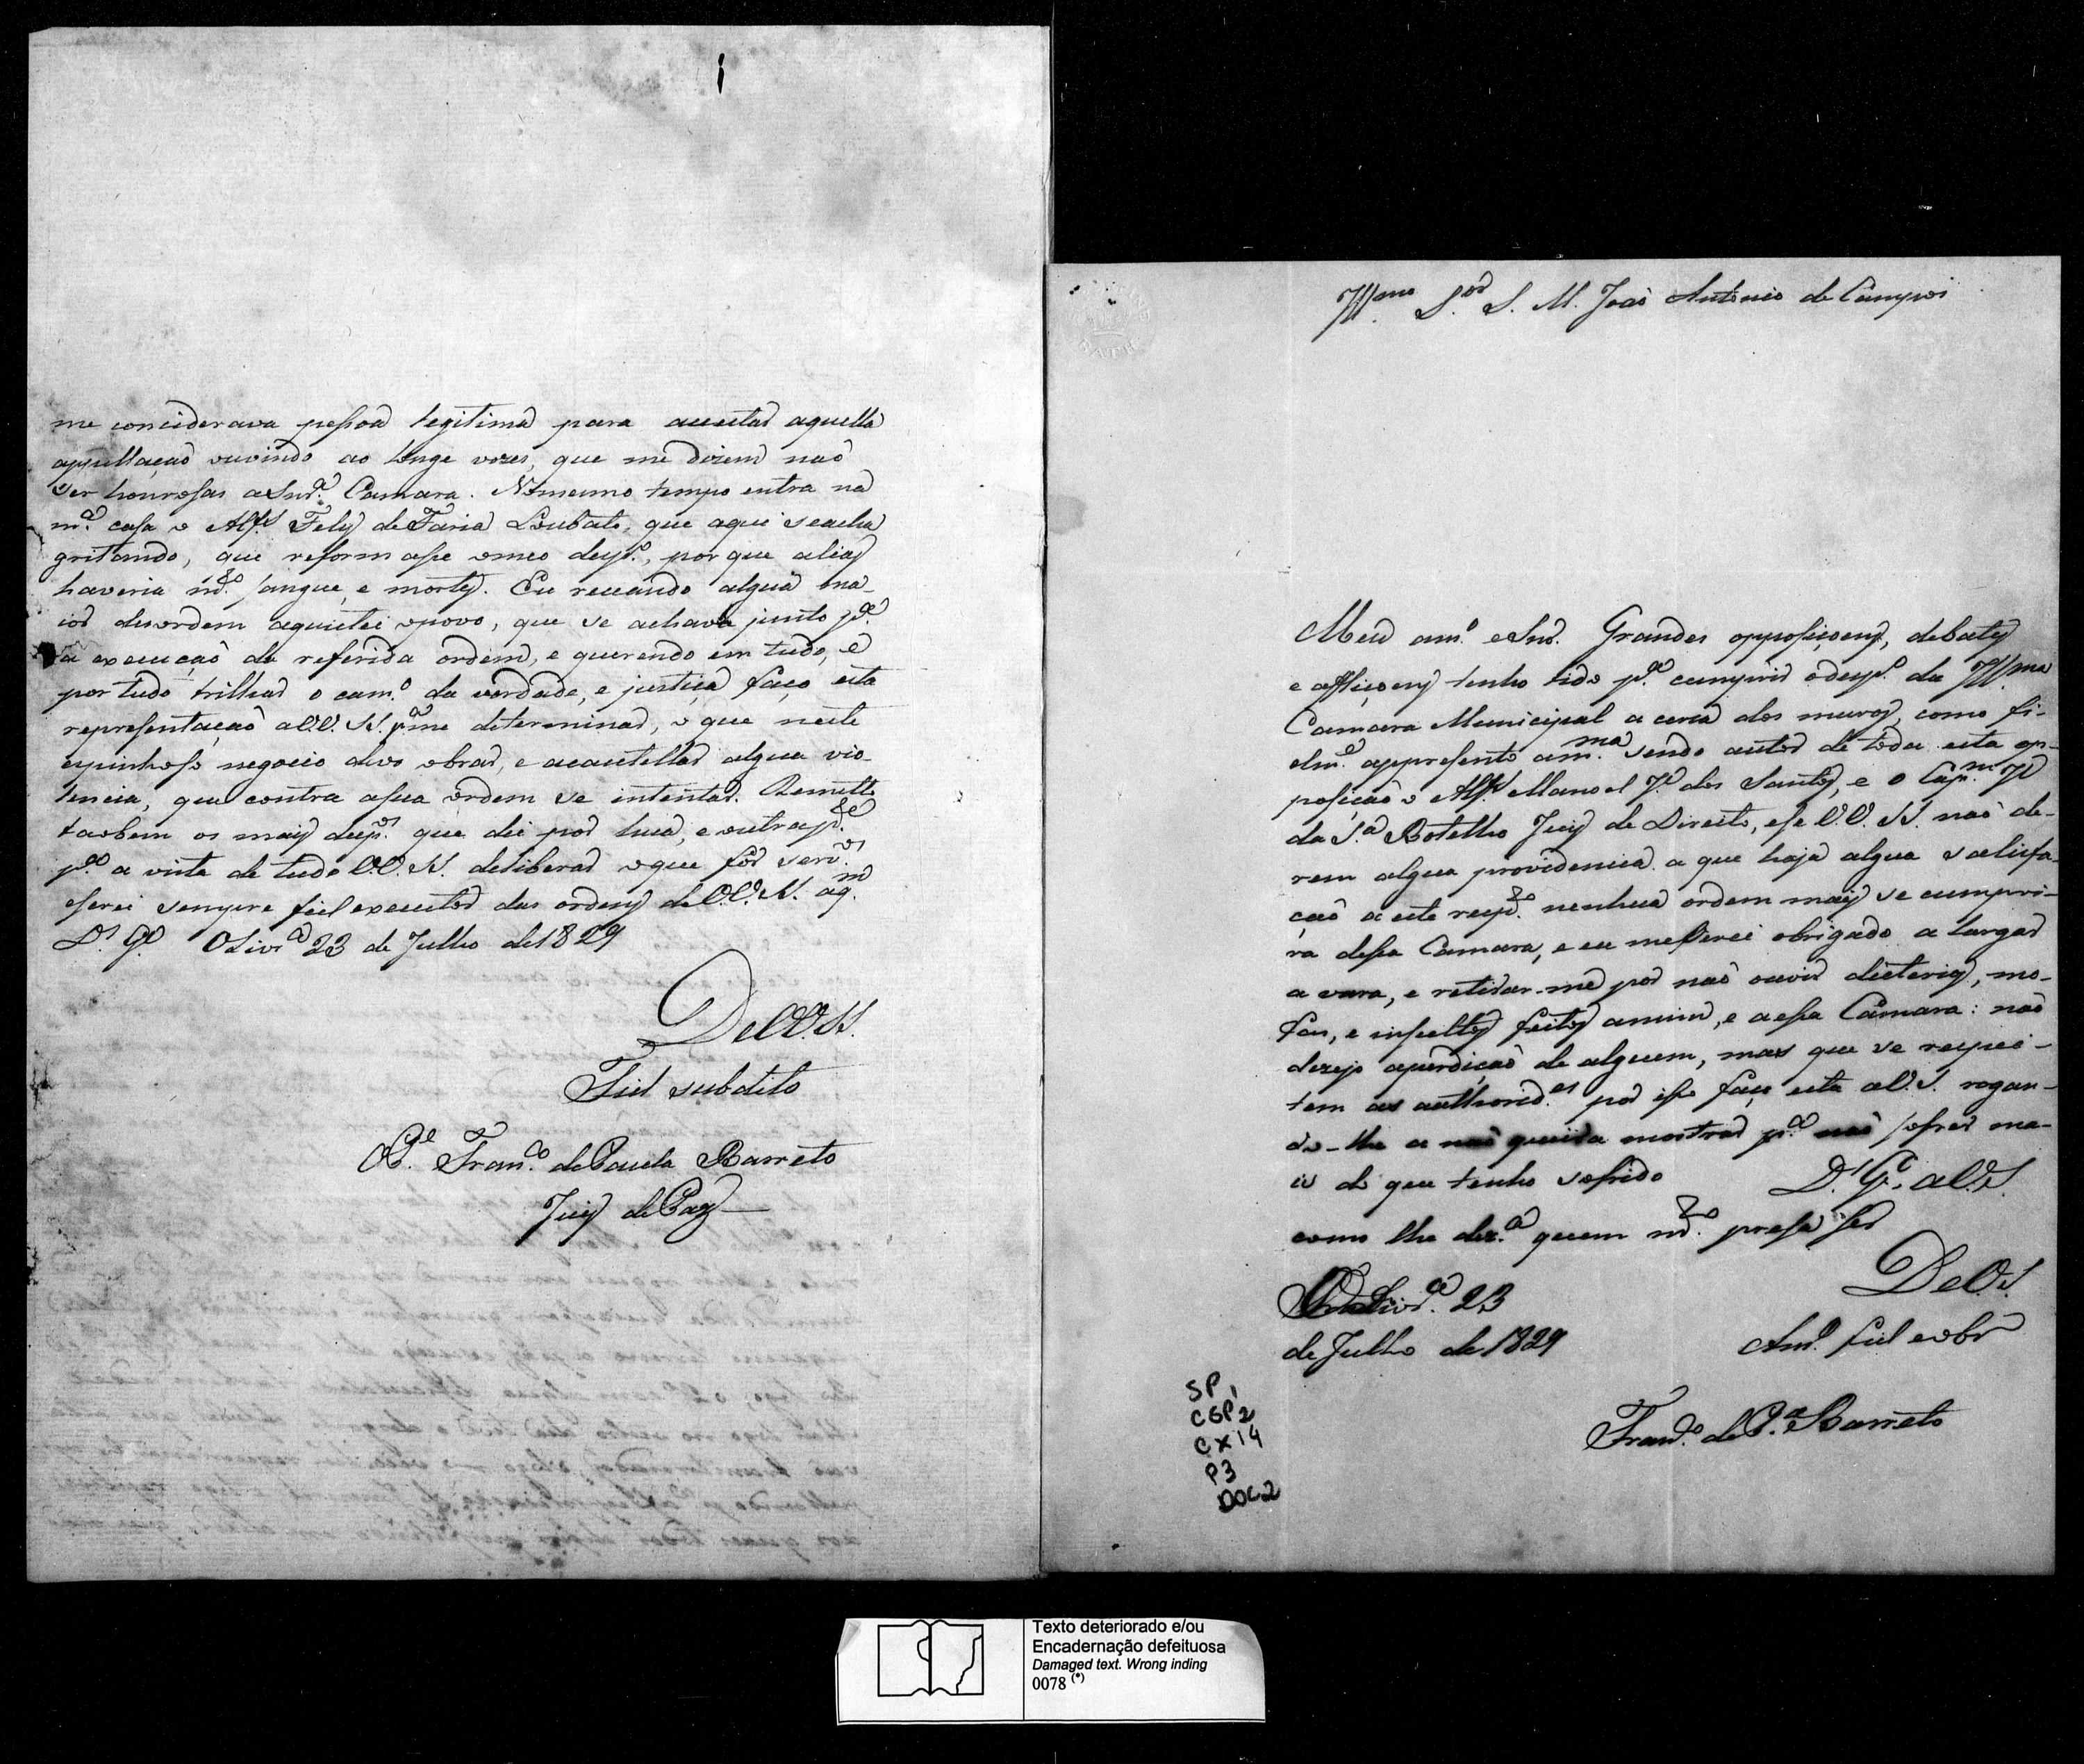 me conciderava pessoa legitima para aceitar aquella
appellação ouvindo ao longe vozes, que me dizem não
ser honrosas a Snr.ª Camara. No mesmo tempo entra na
m.ª casa o Alfs. Felis de Faria Loubato, que aqui se acha
gritando, que reformasse o meo desp.º, por que alias
haveria m.to sangue, e mortes. Eu receando algua ma-
ior desordem aquietei o povo, que se achava junto p.ª
a execução da referida ordem, e querendo em tudo, e
por tudo trilhar o cam.º da verdade, e justiça faço esta
representação a V.V. S.S. p.ª me determinar, o que neste
espinhoso negocio devo obrar, e acautellar algua vio-
lencia, que contra a sua ordem se intentar. Remetto
taobem os mais desp.os que dei por hua, e outra p.te
p.ª a vista de tudo V.V. S.S. deliberar o que for serv.os
e serei sempre fiel executor das ordens de V.V. S.S. a q.m
D.s G.e Olivr.ª 23 de Julho de 1829
De V.V. S.S.
Fiel subdito
O P.e Fran.co de Paula Barreto
Juis de Paz
Illmo Sor S. M. João Antonio de Campos
Meu am.º e Snr. Grandes opposiçoens, debates
e affliçoens tenho tido p.ª cumprir o desp.º da Illma
Camara Municipal a cerca dos muros, como fi-
elm.e appresento a m.ma sendo autor de toda esta op-
posição o Alfs. Manoel J.e dos Santos, e o Cap.m J.e
da S.ª Botelho Juis de Direito, e se V.V. S.S. não de-
rem algua providencia a que haja algua satisfa-
ção a este resp.to nenhua ordem mais se cumpri-
ra dessa Camara, e eu me serei obrigado a largar
a vara, e retirar-me por não ouvir dicterios, mo-
fas, e insultos feitos a mim, e a essa Camara: não
dezejo a perdição de alguem, mas que se respei-
tem as authorid.es por isso faço esta a V.S. rogan-
do-lhe a não queira mostrar p.ª não sofrer ma-
is do que tenho sofrido D.s G.e a V.S.
como lhe dez.ª quem m.to presa ser
De V.S.
Oliv.ª 23
de Julho de 1829
Am.º fiel e obr.º
Fran.co de P.ª Barreto
SP 1
CGP 2
CX 14
P3
DOC 2
Texto deteriorado e/ou
Encadernação defeituosa
Damaged text. Wrong inding
0078 (*)